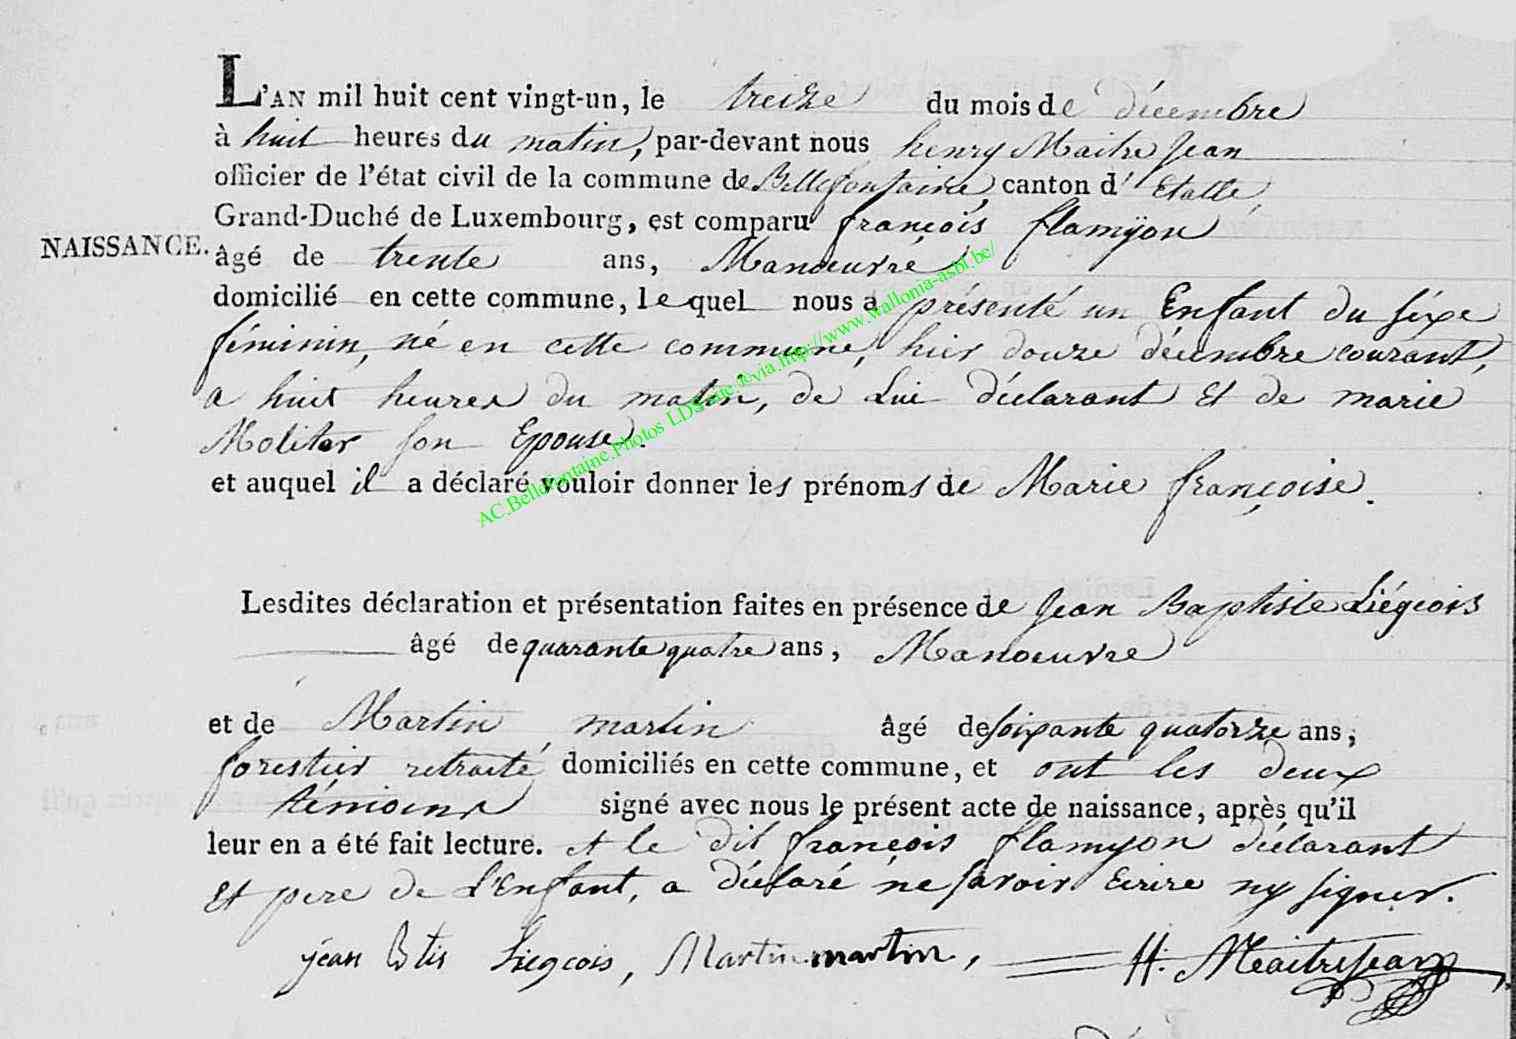 L'AN mil huit cent vingt-un, le treize du mois de décembre
à huit heures du matin, par-devant nous henry Maitre Jean
officier de l'état civil de la commune de Bellefontaine, canton d'Etalle,
Grand-Duché de Luxembourg, est comparu françois flamÿon
NAISSANCE. âgé de trente ans, Manœuvre,
domicilié en cette commune, lequel nous a présenté un Enfant du séxe
féminin, né en cette commune, hier douze décembre courant,
a huit heures du matin, de Lui déclarant Et de marie
Moliter son Epouse.
et auquel il a déclaré vouloir donner les prénoms de Marie françoise.
AC.Bellefontaine.Photos LDS via.http://www.wallonia-asbl.be/
Lesdites déclaration et présentation faites en présence de Jean Baptiste Liégeois
âgé de quarante quatre ans, Manoeuvre
et de Martin martin âgé de soixante quatorze ans,
forestier retraité, domiciliés en cette commune, et ont les deux
témoins signé avec nous le présent acte de naissance, après qu'il
leur en a été fait lecture. et le dit françois flamyon déclarant
Et pere de L'Enfant, a déclaré ne savoir Ecrire ny signer.
jean Btis Liegeois, Martin martin, H. Maitrejean